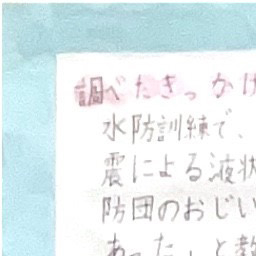 調べたきっかけ
水防訓練で、
震による液状
防団のおじい
あった」と教